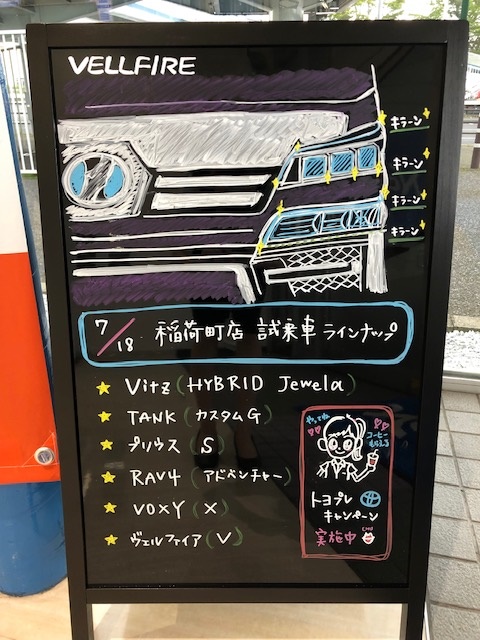 VELLFIRE
キラーン
キラーン
キラーン
キラーン
7/18 稲荷町店 試乗車 ラインナップ
Vitz (HYBRID Jewela)
TANK (カスタムG)
プリウス (S)
RAV4 (アドベンチャー)
VOXY (X)
ヴェルファイア (V)
やってね
コーヒー
トヨプレ
キャンペーン
実施中